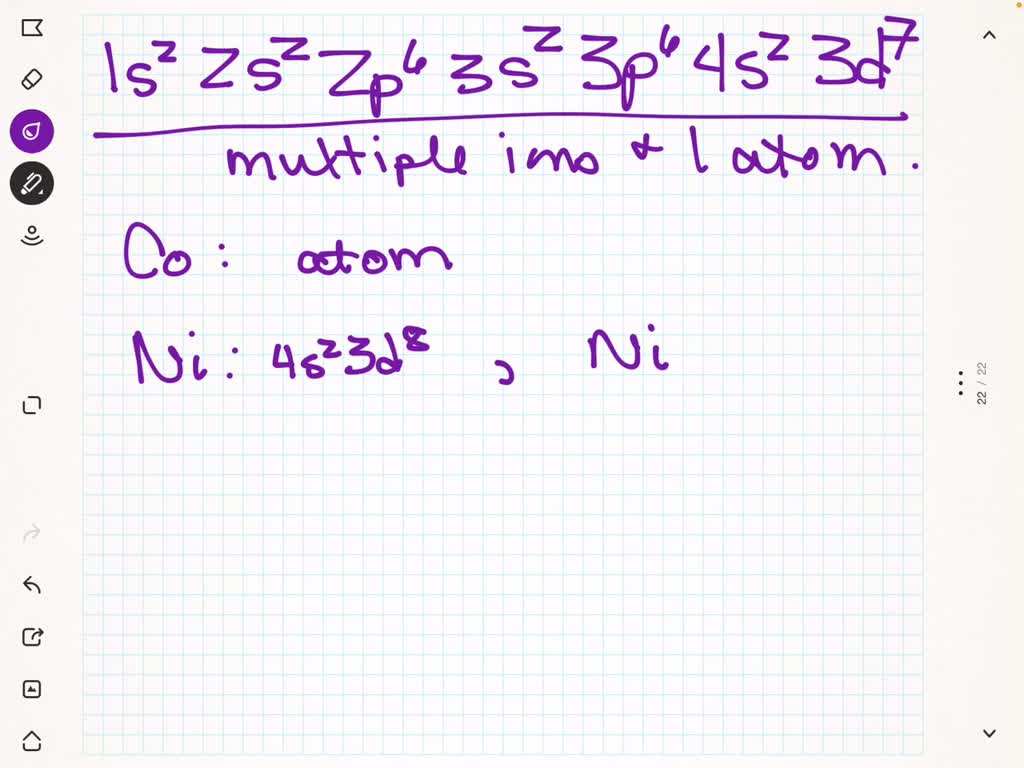 1s² 2s² 2p⁶ 3s² 3p⁶ 4s² 3d⁷
multiple ions & 1 atom.
Co: atom
Ni: 4s²3d⁸, Ni
22 / 22